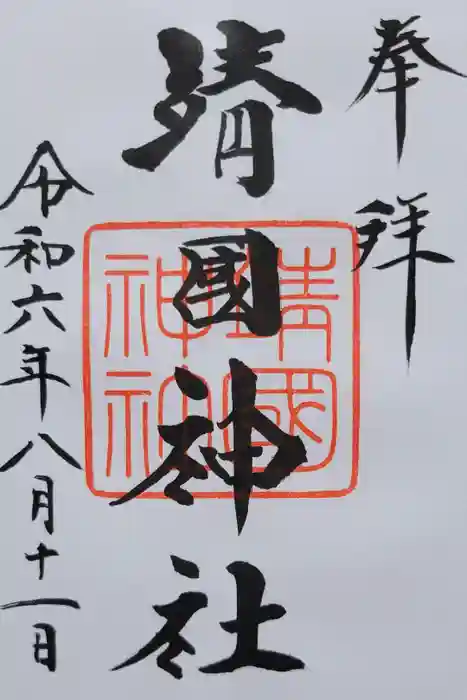 奉拝
靖國神社
靖國
神社
令和六年八月十一日